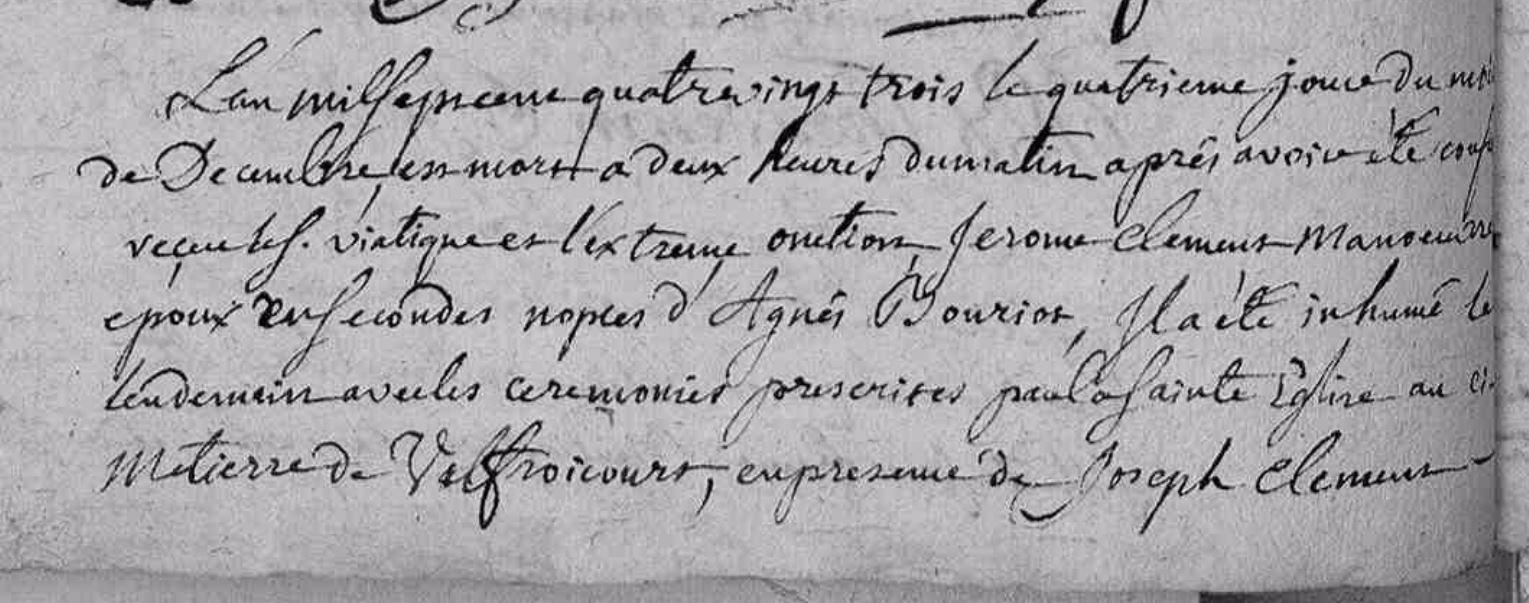 L'an mil sept cent quatrevingt trois le quatrieme jour du
de Decembre, est mort a deux heures du matin aprés avoir été
reçeu le s. viatique et l'extreme onction, Jerome Clement Manoeuvre
epoux en secondes nopces d'Agnés Bouriot, Il a été inhumé le
lendemain avec les ceremonies prescrites par la Sainte Eglise au ci-
metierre de Valfroicourt, en presence de Joseph Clement